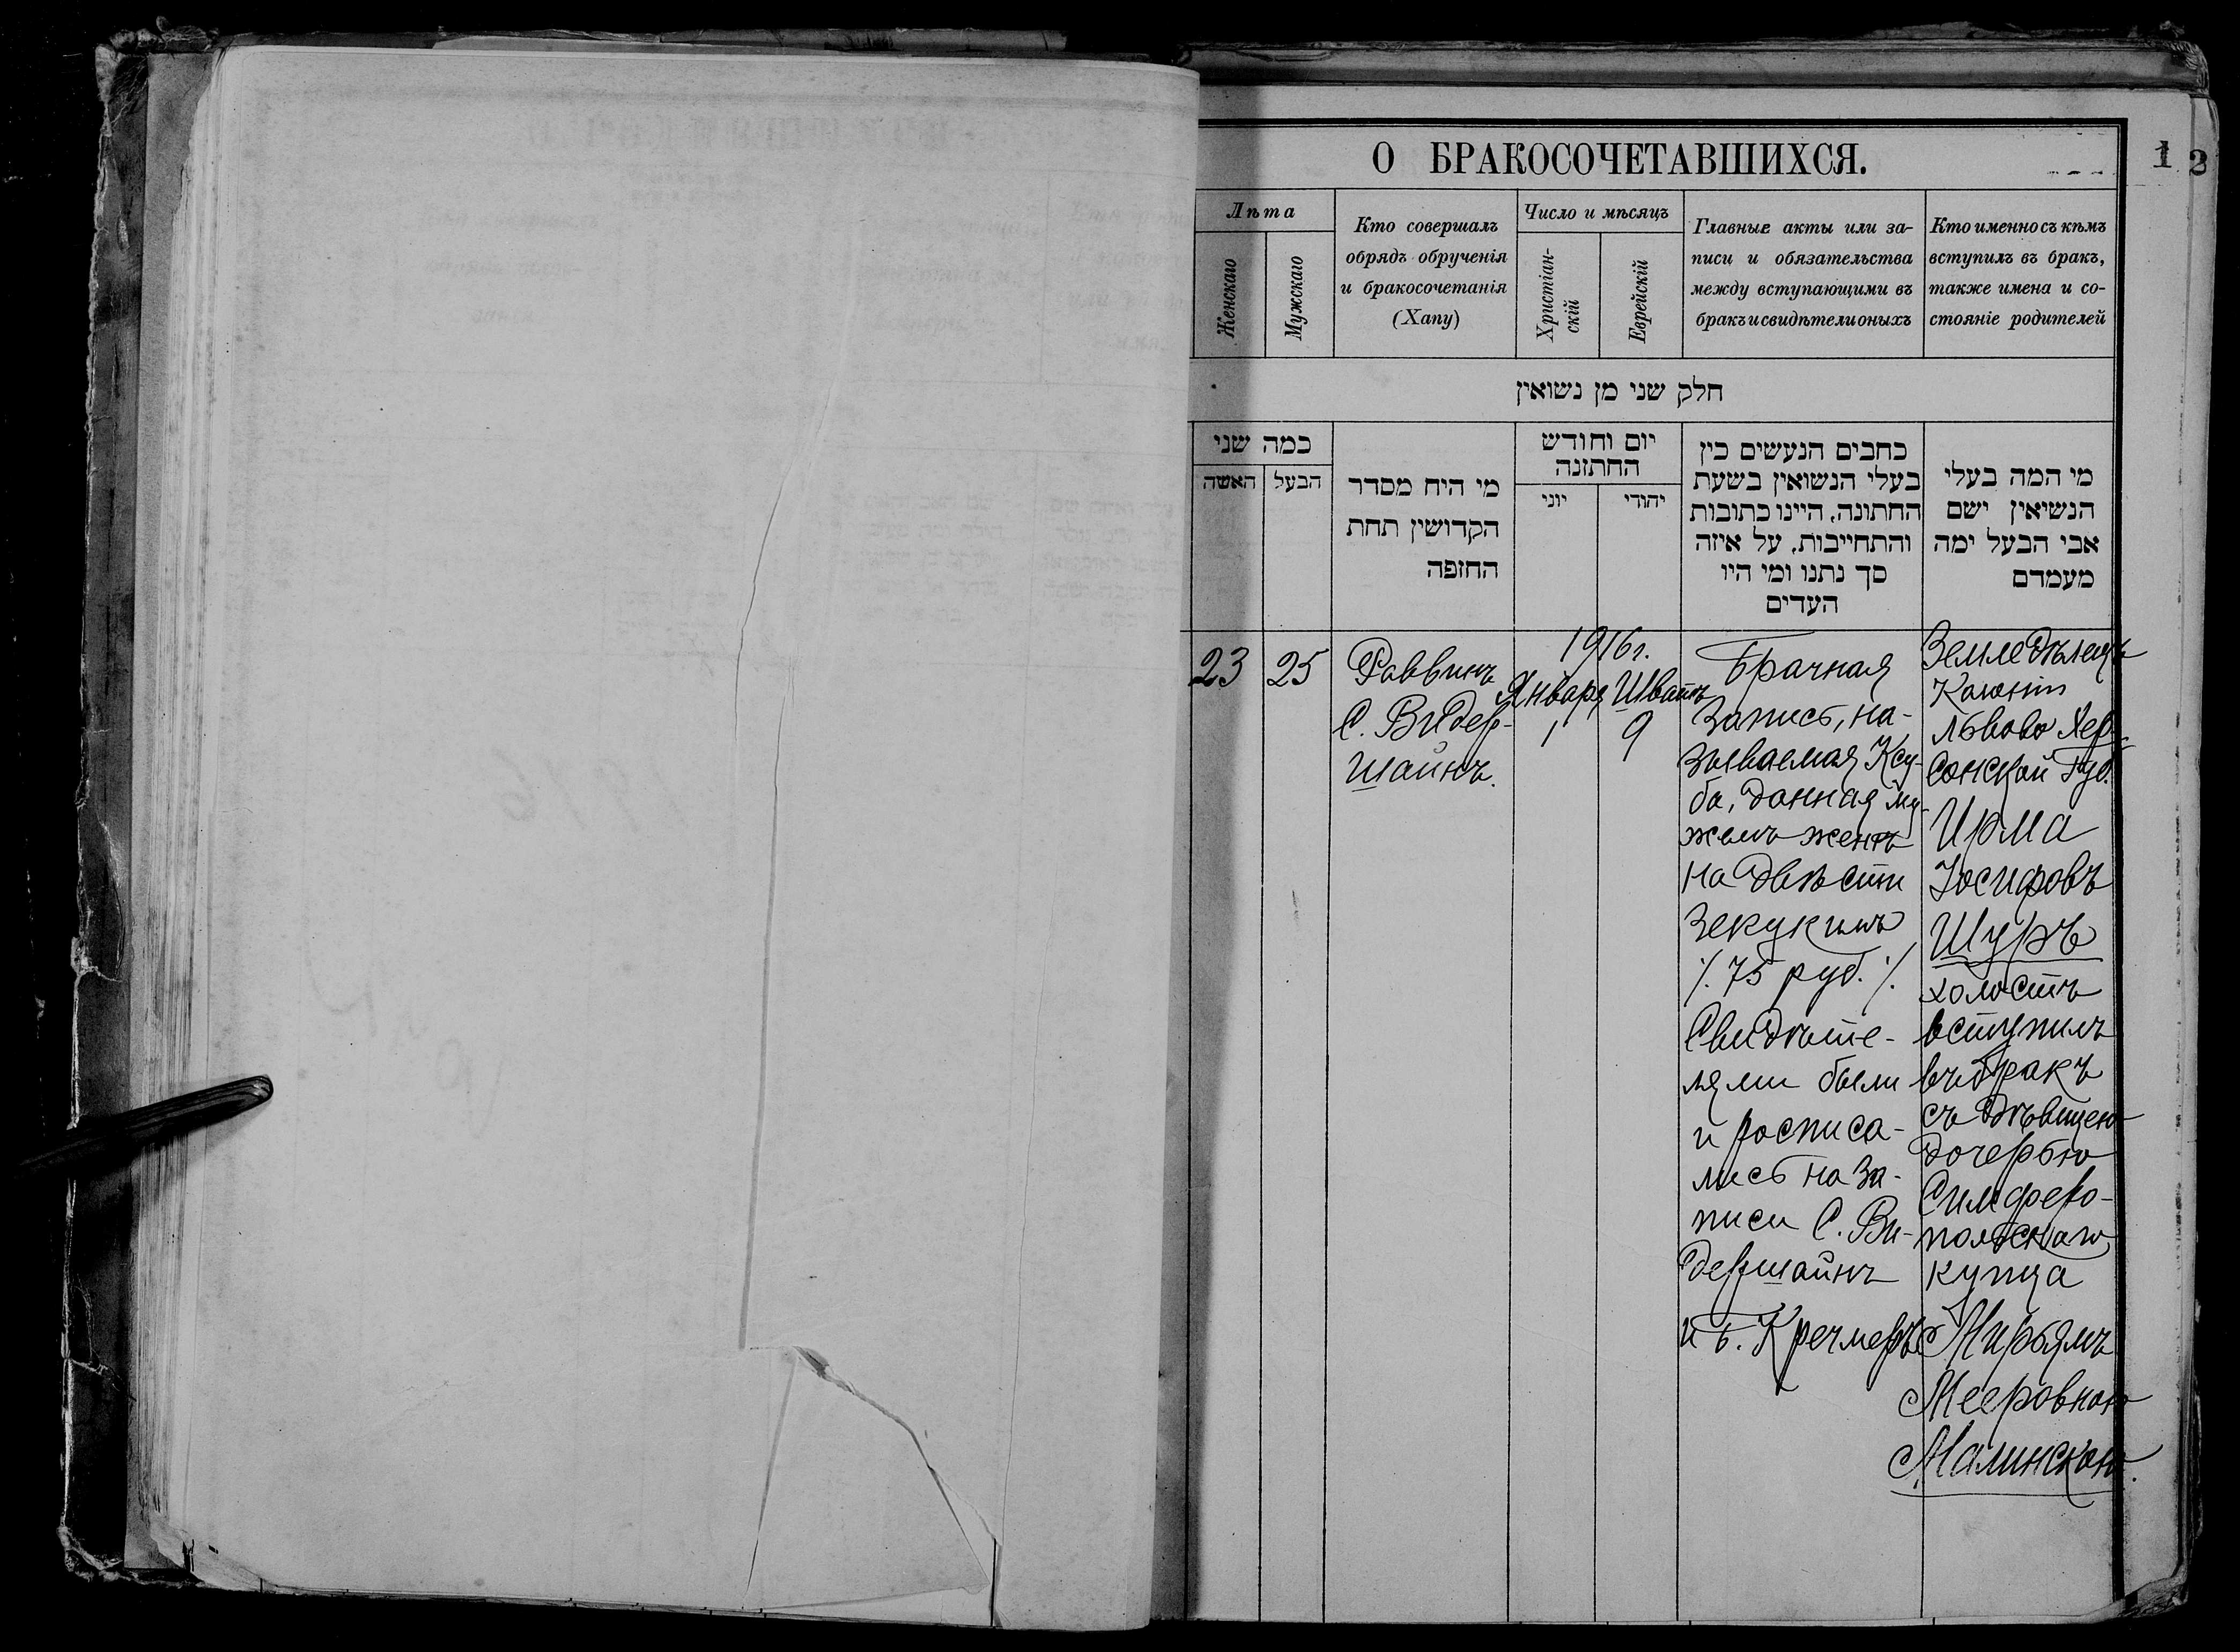 О БРАКОСОЧЕТАВШИХСЯ.
1 2
Лѣта
Женскаго
Мужскаго
Кто совершалъ
обрядъ обрученія
и бракосочетанія
(Хапу)
Число и мѣсяцъ
Христіан-
скій
Еврейскій
Главные акты или за-
писи и обязательства
между вступающими въ
бракъ и свидѣтели оныхъ
Кто именно съ кѣмъ
вступилъ въ бракъ,
также имена и со-
стояніе родителей
חלק שני מן נשואין
כמה שני
האשה
הבעל
מי היח מסדר
הקדושין תחת
החזפה
יום וחודש
החתזנה
יוני
יהודי
כחבים הנעשים כין
בעלי הנשואין בשעת
החתונה, היינו כתובות
והתחייבות, על איזה
סך נתנו ומי היו
העדים
מי המה בעלי
הנשיאין ישם
אבי הבעל ימה
מעמדם
23
25
Раввинъ
С. Видер-
шайнъ.
1916 г.
Января Шватъ
1 9
Брачная
запись, на-
зываемая Ксу-
ба, данная му-
жемъ женѣ
на двѣсти
зекукимъ
/. 75 руб. /.
Свидѣте-
лями были
и росписа-
лись на за-
писи С. Ви-
дершайнъ
и Б. Кречмеръ
Земледѣлецъ
Колоніи
Львово Хер-
сонской Губ.
Ирма
Іосифовъ
Шуръ
холостъ
вступилъ
въ бракъ
съ дѣвицею
дочерью
Симферо-
польскаго
купца
Мирьямъ
Мееровною
Малинскою.